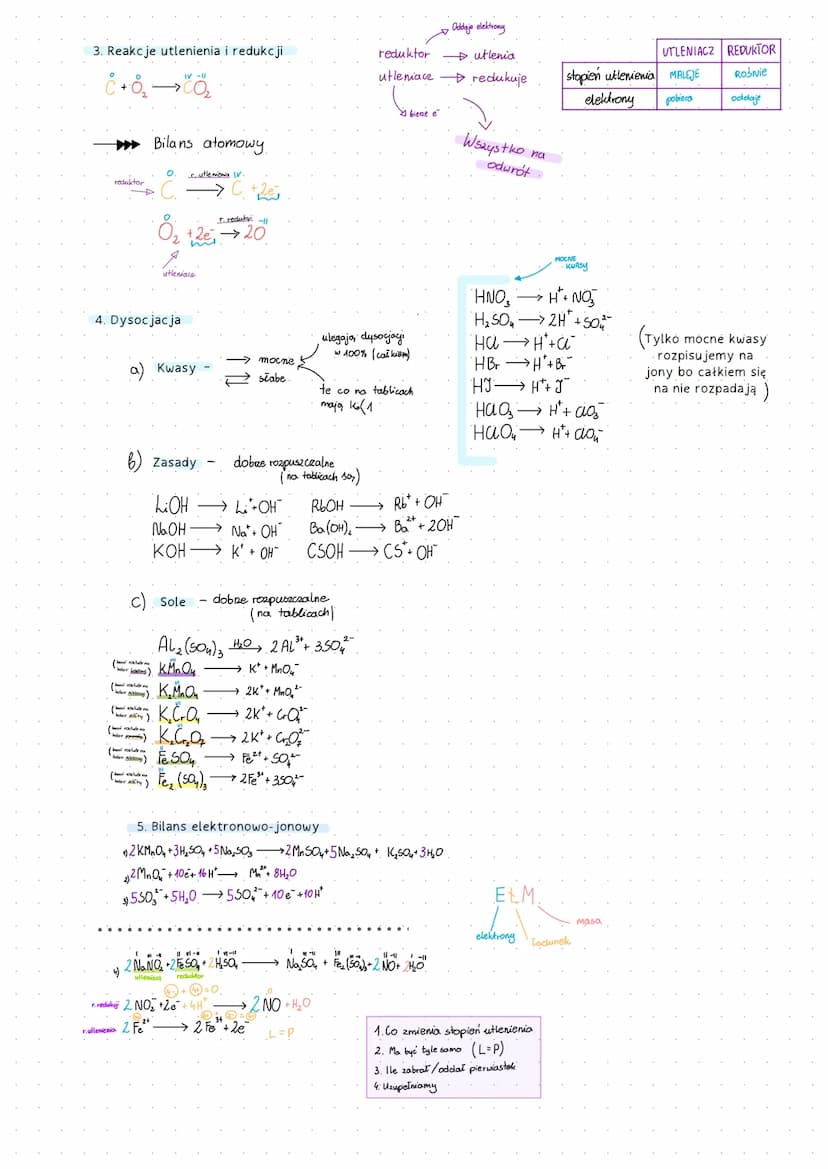 3. Reakcje utlenienia i redukcji
0 0 IV -II
C + O₂ → CO₂
Oddaje elektrony
reduktor → utlenia
utleniacz → redukuje
bierze e⁻
Wszystko na
odwrót.
UTLENIACZ REDUKTOR
stopień utlenienia MALEJE ROŚNIE
elektrony pobiera oddaje
Bilans atomowy
0 r. utleniania IV
reduktor C → C + 2e⁻
0 r. redukcji -II
O₂ + 2e⁻ → 2O
utleniacz
4. Dysocjacja
a) Kwasy -
mocne
słabe
ulegają dysocjacji
w 100% (całkiem)
te co na tablicach
mają
MOCNE
KWASY
HNO₃ → H⁺ + NO₃⁻
H₂SO₄ → 2H⁺ + SO₄²⁻
HCl → H⁺ + Cl⁻
HBr → H⁺ + Br⁻
HJ → H⁺ + J⁻
HClO₃ → H⁺ + ClO₃⁻
HClO₄ → H⁺ + ClO₄⁻
(Tylko mocne kwasy
rozpisujemy na
jony bo całkiem się
na nie rozpadają)
b) Zasady - dobrze rozpuszczalne
(na tablicach są)
LiOH → Li⁺ + OH⁻ RbOH → Rb⁺ + OH⁻
NaOH → Na⁺ + OH⁻ Ba(OH)₂ → Ba²⁺ + 2OH⁻
KOH → K⁺ + OH⁻ CSOH → CS⁺ + OH⁻
c) Sole - dobrze rozpuszczalne
(na tablicach)
Al₂(SO₄)₃ H₂O → 2Al³⁺ + 3SO₄²⁻
KMnO₄ → K⁺ + MnO₄⁻
K₂MnO₄ → 2K⁺ + MnO₄²⁻
K₂CrO₄ → 2K⁺ + CrO₄²⁻
K₂Cr₂O₇ → 2K⁺ + Cr₂O₇²⁻
FeSO₄ → Fe²⁺ + SO₄²⁻
Fe₂(SO₄)₃ → 2Fe³⁺ + 3SO₄²⁻
5. Bilans elektronowo-jonowy
1) 2KMnO₄ + 3H₂SO₄ + 5Na₂SO₃ → 2MnSO₄ + 5Na₂SO₄ + K₂SO₄ + 3H₂O
2) 2MnO₄⁻ + 10e⁻ + 16H⁺ → Mn²⁺ + 8H₂O
3) 5SO₃²⁻ + 5H₂O → 5SO₄²⁻ + 10e⁻ + 10H⁺
EŁM
elektrony
Ładunek
masa
4) 2NaNO₂ + 2FeSO₄ + 2H₂SO₄ → Na₂SO₄ + Fe₂(SO₄)₃ + 2NO + 2H₂O
utleniacz reduktor
r. redukcji 2NO₂⁻ + 2e⁻ + 4H⁺ → 2NO + H₂O
r. utleniania 2Fe²⁺ → 2Fe³⁺ + 2e⁻
L=P
1. Co zmienia stopień utlenienia
2. Ma być tyle samo (L=P)
3. Ile zabrał/oddał pierwiastek
4. Uzupełniamy